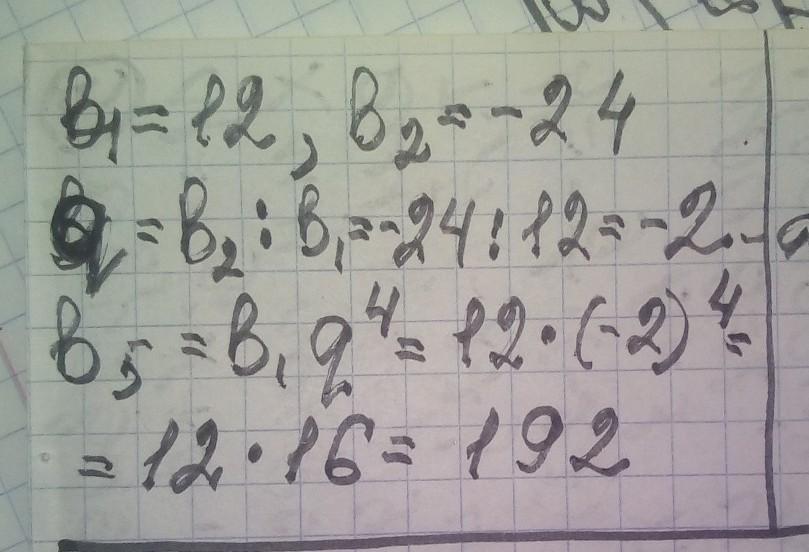 b₁ = 12, b₂ = -24
q = b₂ : b₁ = -24 : 12 = -2.
b₅ = b₁ q⁴ = 12 · (-2)⁴ =
= 12 · 16 = 192